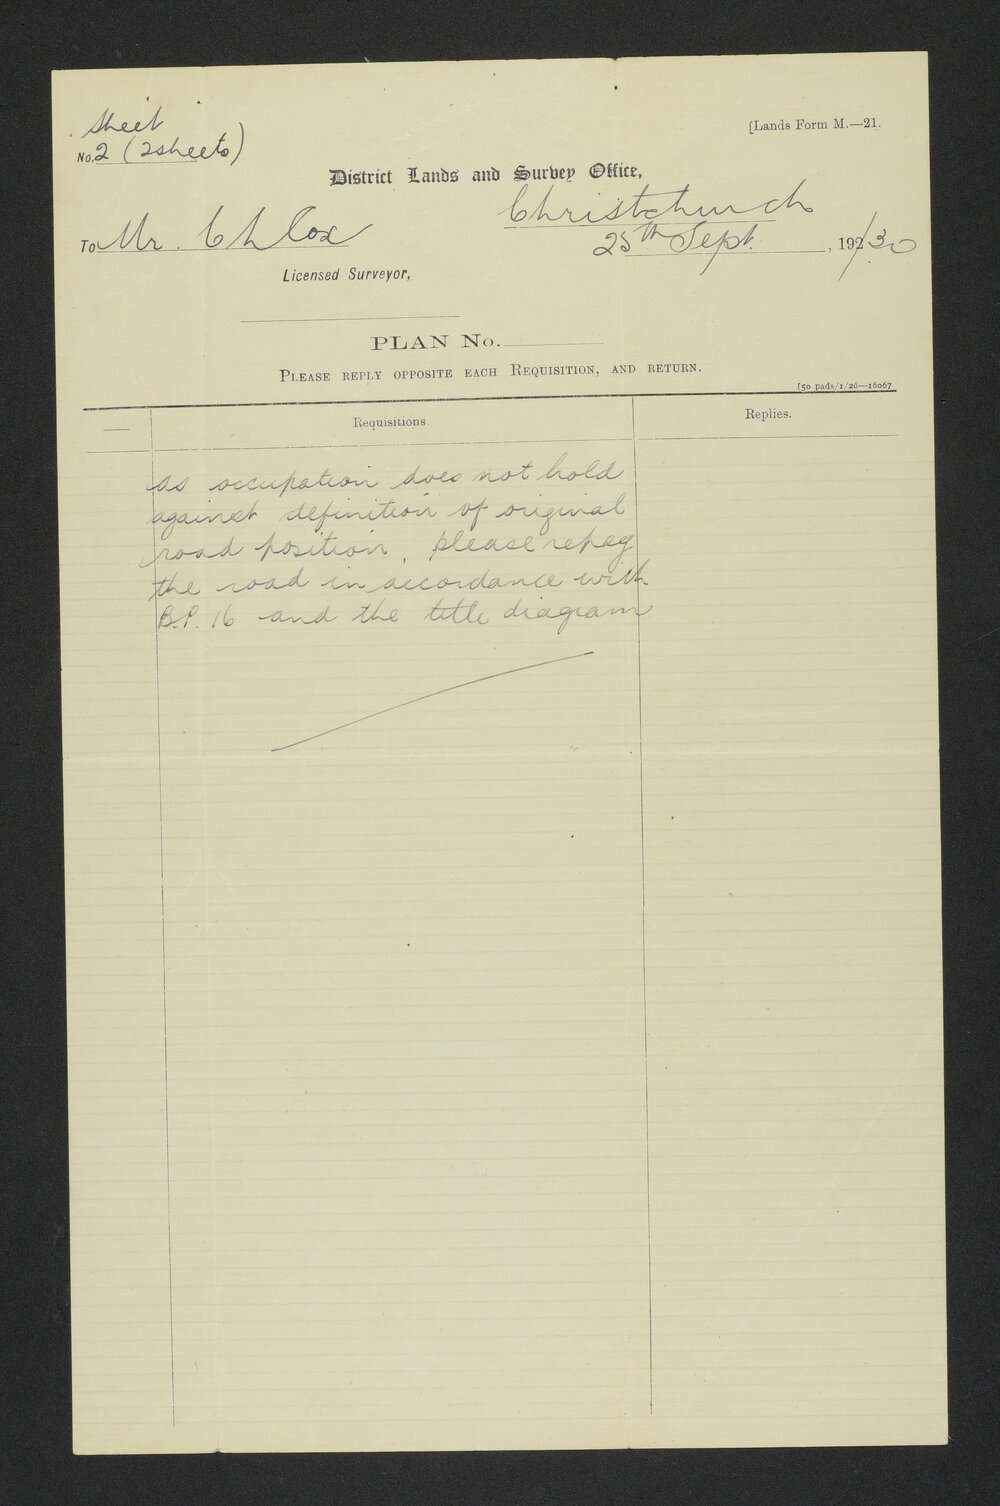 Sheet
No. 2 (2 sheets)
[Lands Form M.—21.
District Lands and Survey Office,
Christchurch
25th Sept. , 192/30
To Mr. C H Cox
Licensed Surveyor,
PLAN No.
PLEASE REPLY OPPOSITE EACH REQUISITION, AND RETURN.
[50 pads/1/26—16067
Requisitions.
Replies.
As occupation does not hold
against definition of original
road position, please repeg
the road in accordance with
B.P. 16 and the title diagram